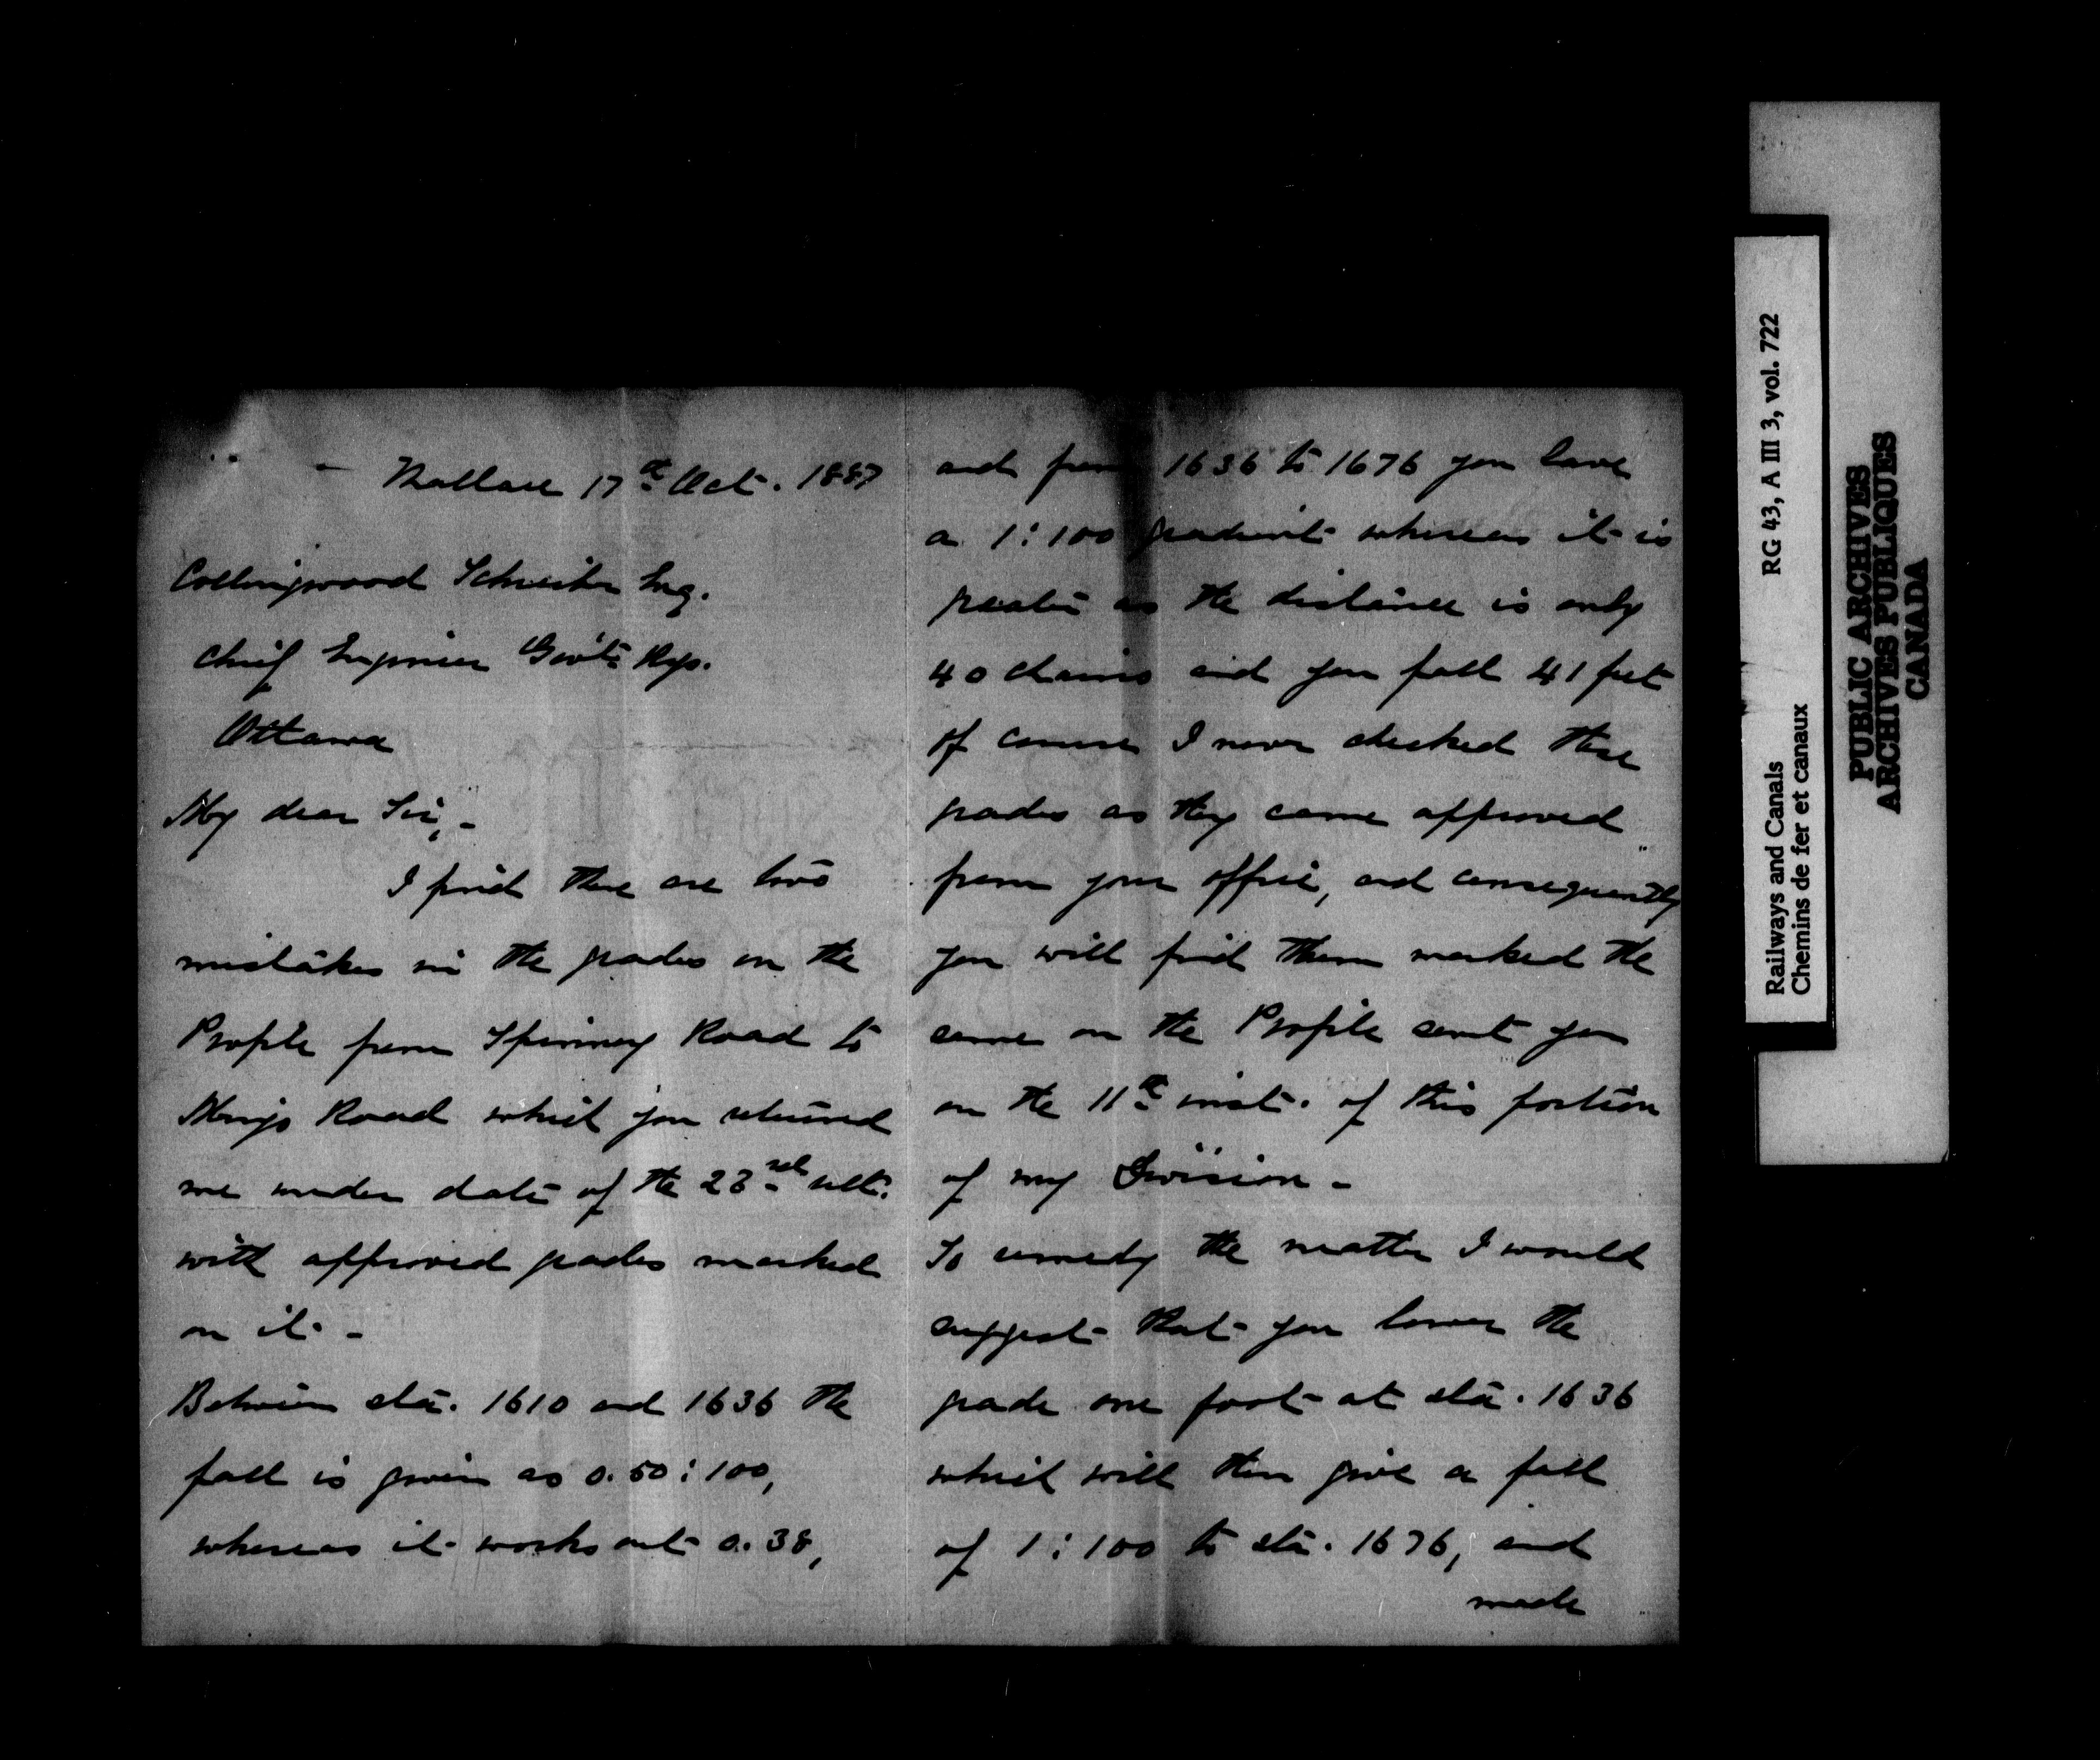 Wallace 17th Oct. 1887
Collingwood Schreiber Esq.
Chief Engineer Govt. Rys.
Ottawa
My dear Sir,-
I find there are two
mistakes in the grades on the
Profile from Spinney Road to
Mingo Road which you returned
me under date of the 23rd ult.
with approved grades marked
on it -
Between sta. 1610 and 1636 the
fall is given as 0.50:100,
whereas it works out 0.38,
and from 1636 to 1676 you have
a 1:100 gradient whereas it is
greater as the distance is only
40 chains and you fall 41 feet
of course I never checked these
grades as they came approved
from your office, and consequently
you will find them marked the
same on the Profile sent you
on the 11th inst. of this portion
of my Division -
To remedy the matter I would
suggest that you lower the
grade one foot at sta. 1636
which will then give a fall
of 1:100 to sta. 1676, and
made
Railways and Canals RG 43, A III 3, vol. 722
Chemins de fer et canaux
PUBLIC ARCHIVES
ARCHIVES PUBLIQUES
CANADA